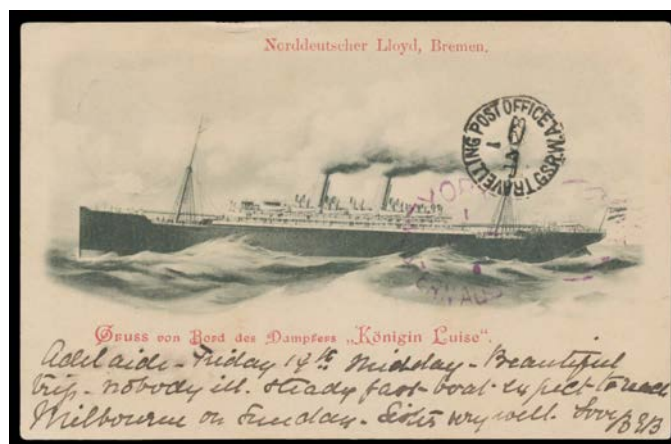 Norddeutscher Lloyd, Bremen.
TRAVELLING POST OFFICE
Gruss von Bord des Dampfers „Königin Luise“.
Adelaide - Friday 14th Midday - Beautiful
trip - nobody ill. steady fast boat expect to reach
Melbourne on Sunday - very well. Love